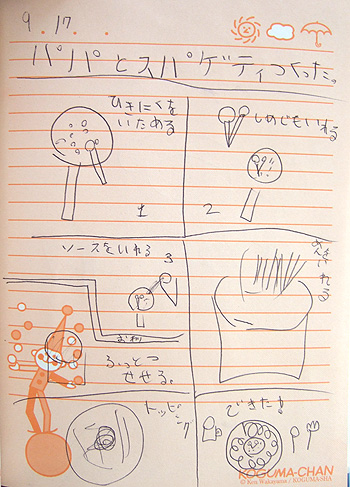 9.17...
パパとスパゲティつくった。
ひきにくを
いためる
1
しめじもいれる
2
ソースをいれる
3
ふっとう
させる。
めんをいれる
トッピング
できた!
KOGUMA-CHAN
© Ken Wakayama / KOGUMASHA